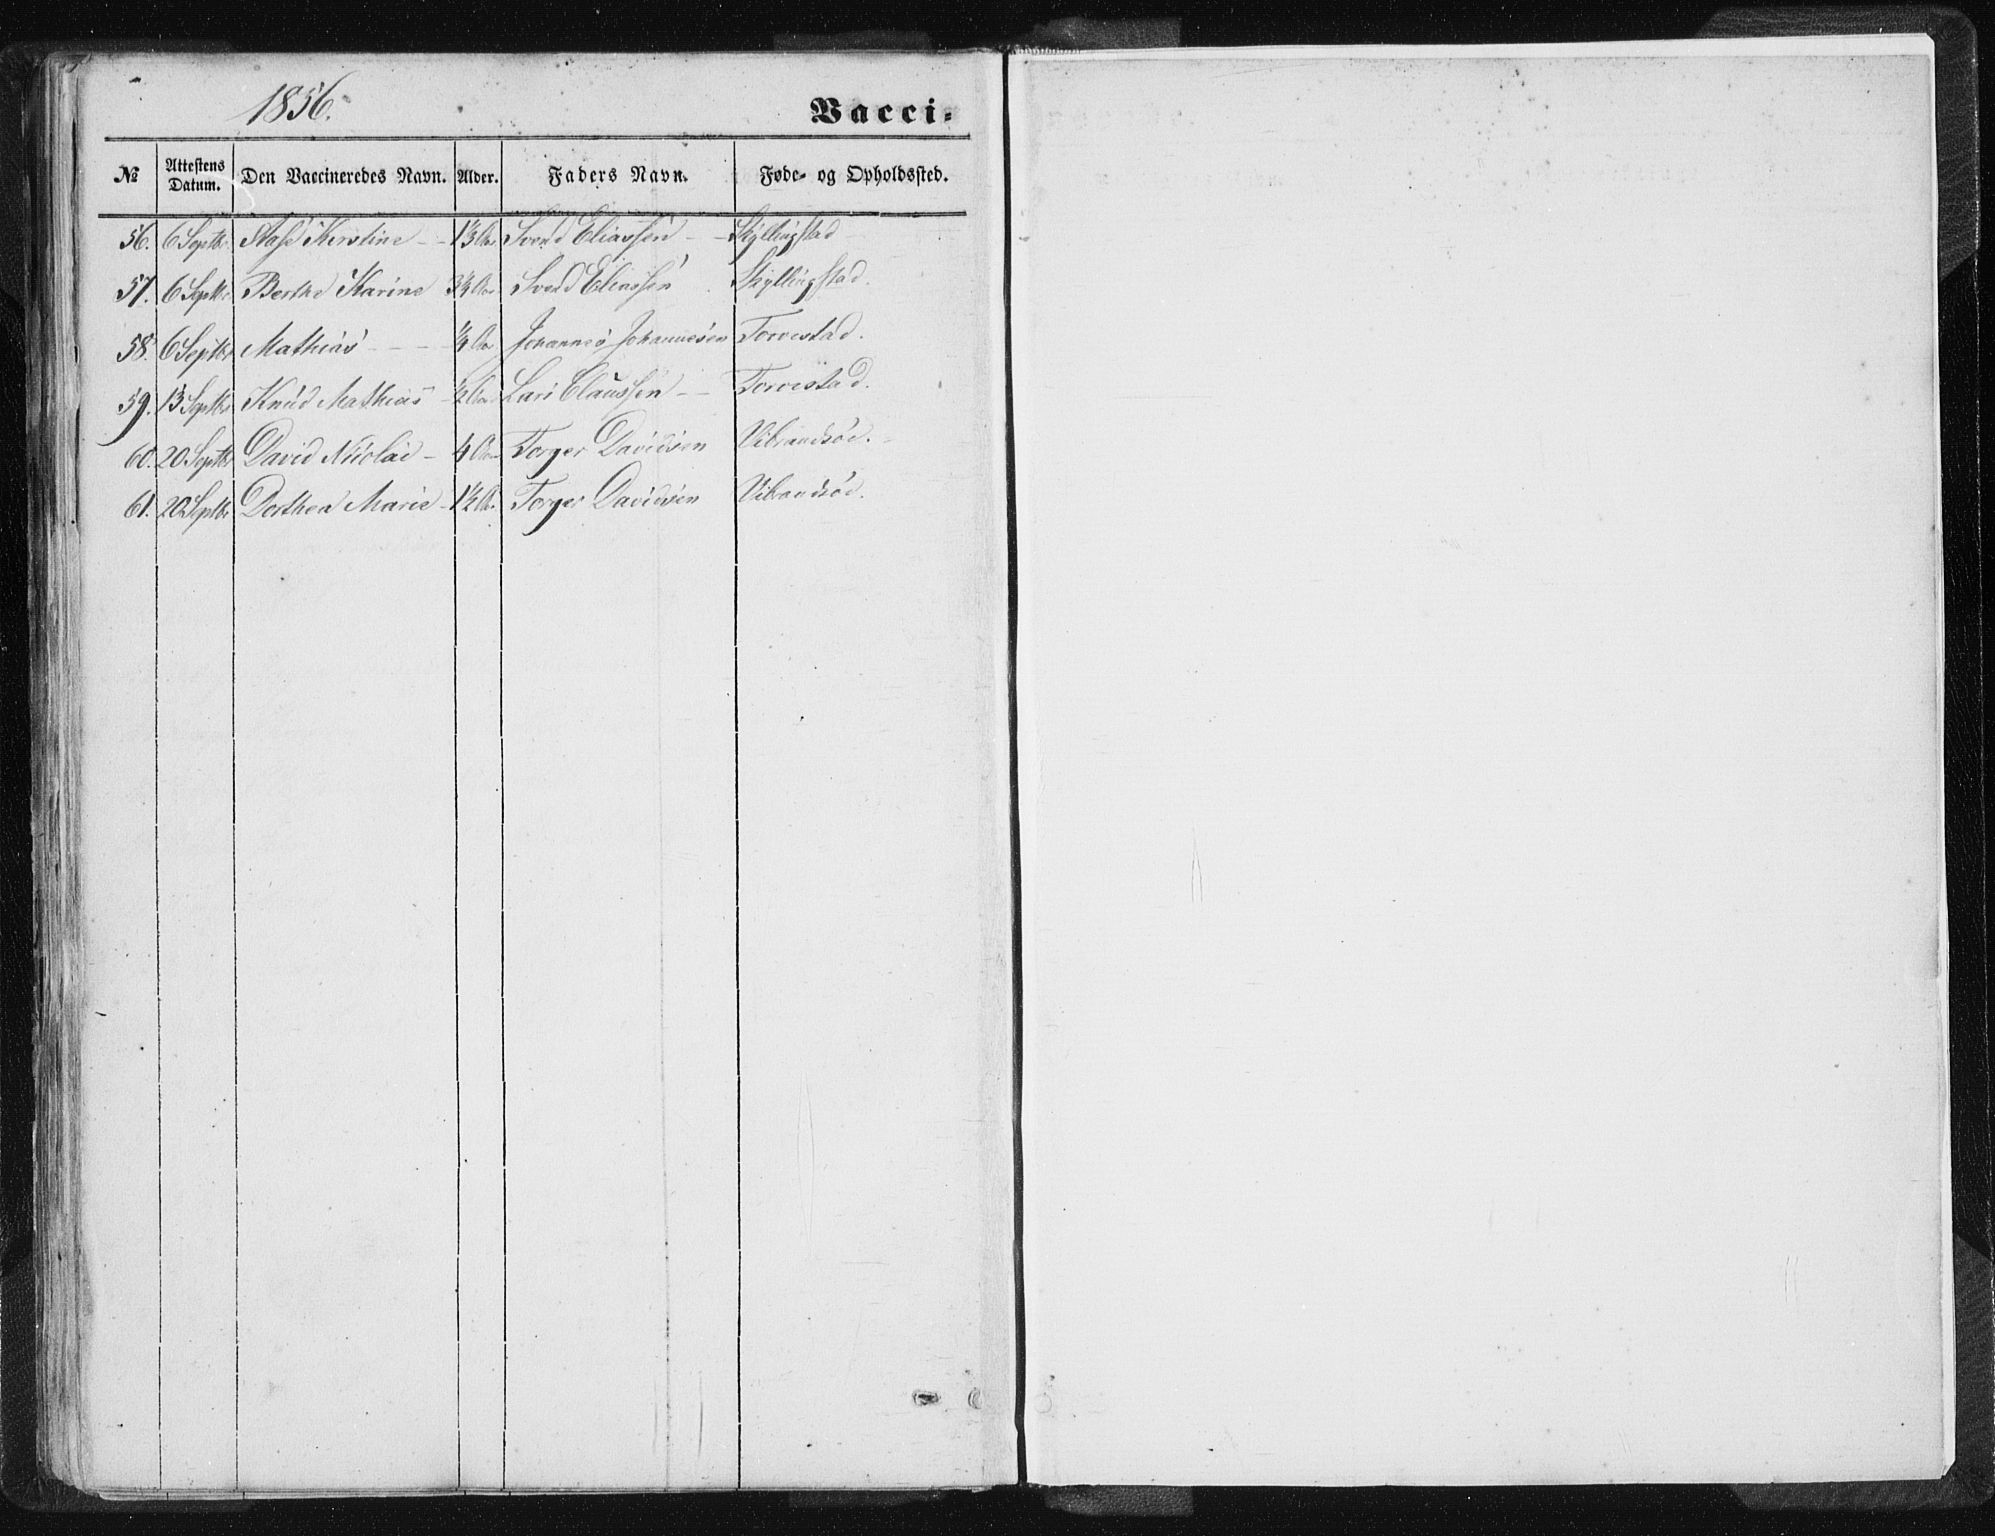 1856.
Vacci-
№ Attestens Datum. Den Vaccineredes Navn. Alder. Faders Navn. Føde- og Opholdssted.
56. 6 Septbr Aase Kirstine - - 1½ Aar Svend Eliassen - - Skyllingstad
57. 6 Septbr Berthe Karine 3½ Aar Svend Eliassen Skyllingstad.
58. 6 Septbr Mathias - - - ¼ Aar Johannes Johannesen Torvestad.
59. 13 Septbr Knud Mathias - ½ Aar Lars Claussen - - Torvestad.
60. 20 Septbr David Nicolai - 4 Aar Torger Davidsen Vibrandsøe.
61. 20 Septbr Dorthea Marie - 1½ Aar Torger Davidsen Vibrandsøe.